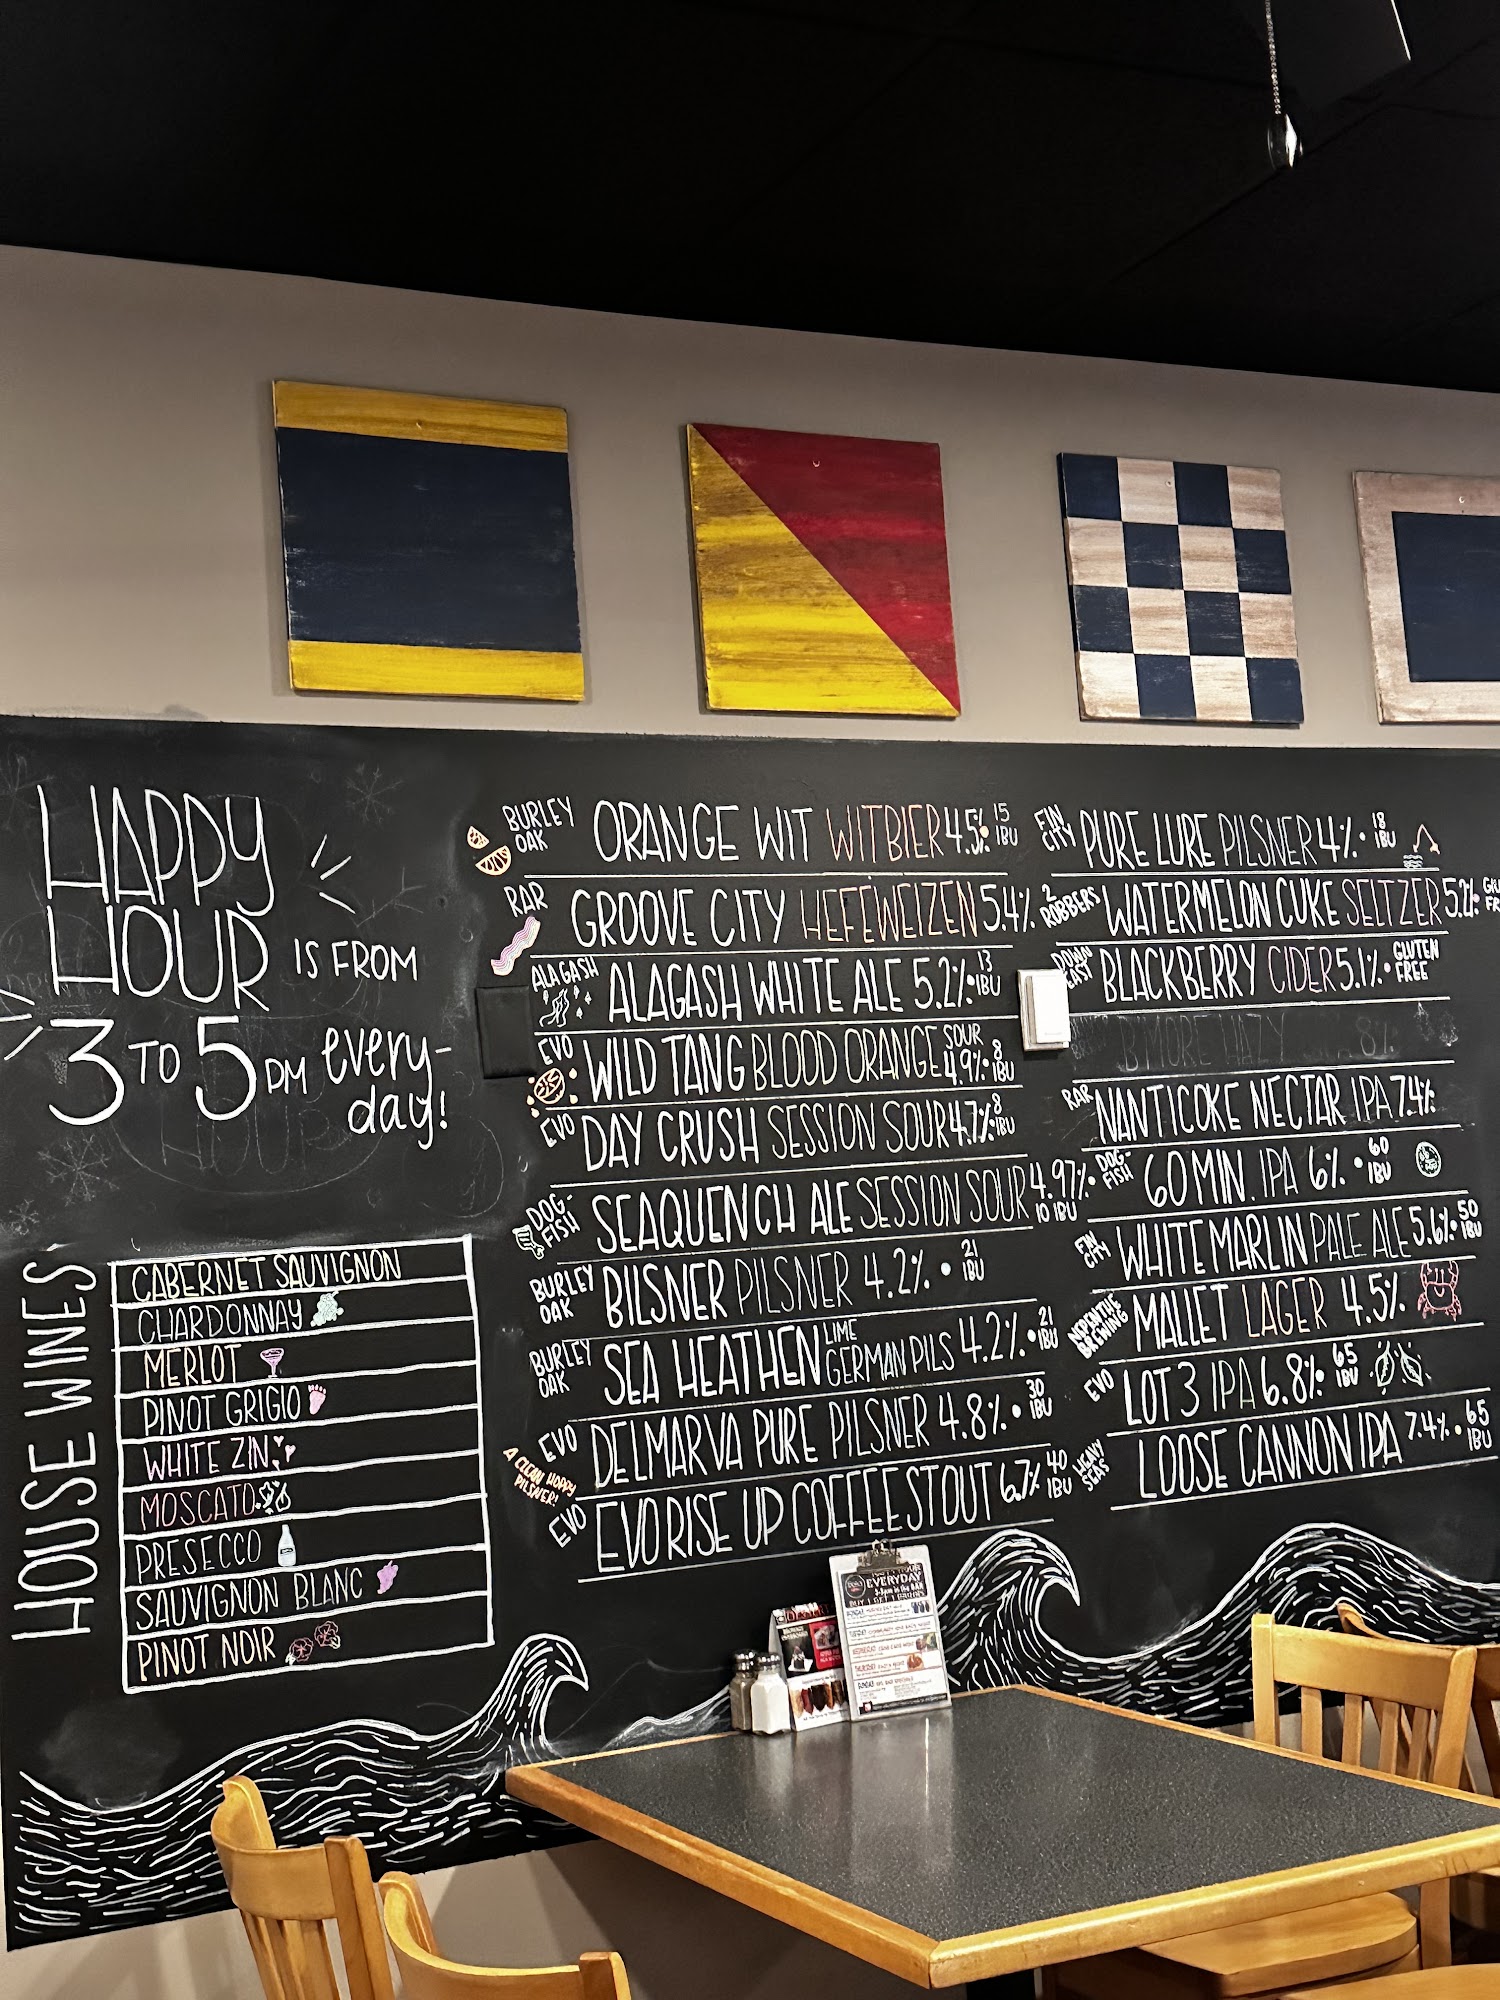 HAPPY
HOUR IS FROM
3 TO 5 PM every-
day!
HOUSE WINES
CABERNET SAUVIGNON
CHARDONNAY
MERLOT
PINOT GRIGIO
WHITE ZIN
MOSCATO
PRESECCO
SAUVIGNON BLANC
PINOT NOIR
BURLEY OAK ORANGE WIT WITBIER 4.5% • 15 IBU
RAR GROOVE CITY HEFEWEIZEN 5.4%
ALAGASH ALAGASH WHITE ALE 5.2% • 13 IBU
EVO WILD TANG BLOOD ORANGE SOUR 4.9% • 8 IBU
EVO DAY CRUSH SESSION SOUR 4.7% • 8 IBU
DOG-FISH SEAQUENCH ALE SESSION SOUR 4.97% • 10 IBU
BURLEY OAK BILSNER PILSNER 4.2% • 21 IBU
BURLEY OAK SEA HEATHEN LIME GERMAN PILS 4.2% • 21 IBU
EVO DELMARVA PURE PILSNER 4.8% • 30 IBU
A CLEAN HOPPY PILSNER!
EVO EVO RISE UP COFFEE STOUT 6.7% 40 IBU
FIN CITY PURE LURE PILSNER 4% • 18 IBU
2 ROBBERS WATERMELON CUKE SELTZER 5.2% •
DOWN EAST BLACKBERRY CIDER 5.1% • GLUTEN FREE
B'MORE HAZY 8%
RAR NANTICOKE NECTAR IPA 7.4%
DOG-FISH 60 MIN. IPA 6% • 60 IBU
FIN CITY WHITE MARLIN PALE ALE 5.6% • 50 IBU
NEPENTHE BREWING MALLET LAGER 4.5%
EVO LOT 3 IPA 6.8% • 65 IBU
HEAVY SEAS LOOSE CANNON IPA 7.4% • 65 IBU
EVERYDAY